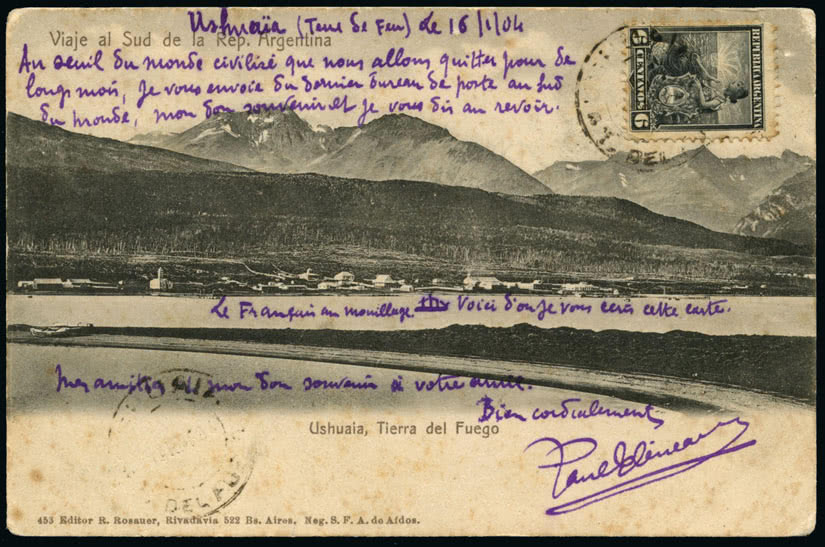 Ushuaïa (Terre de Feu) Le 16/1/04
Viaje al Sud de la Rep. Argentina
Au seuil du monde civilisé que nous allons quitter pour de
longs mois, je vous envoie du dernier bureau de poste au sud
du monde, mon bon souvenir et je vous dis au revoir.
REPUBLICA ARGENTINA
6 CENTAVOS 6
Le Français au mouillage Voici d'ou je vous ecris cette carte.
Mes amitiés et mon bon souvenir à votre
Bien cordialement
Ushuaia, Tierra del Fuego
Paul Pléneau
453 Editor R. Rosauer, Rivadavia 522 Bs. Aires. Neg. S. F. A. de Afdos.